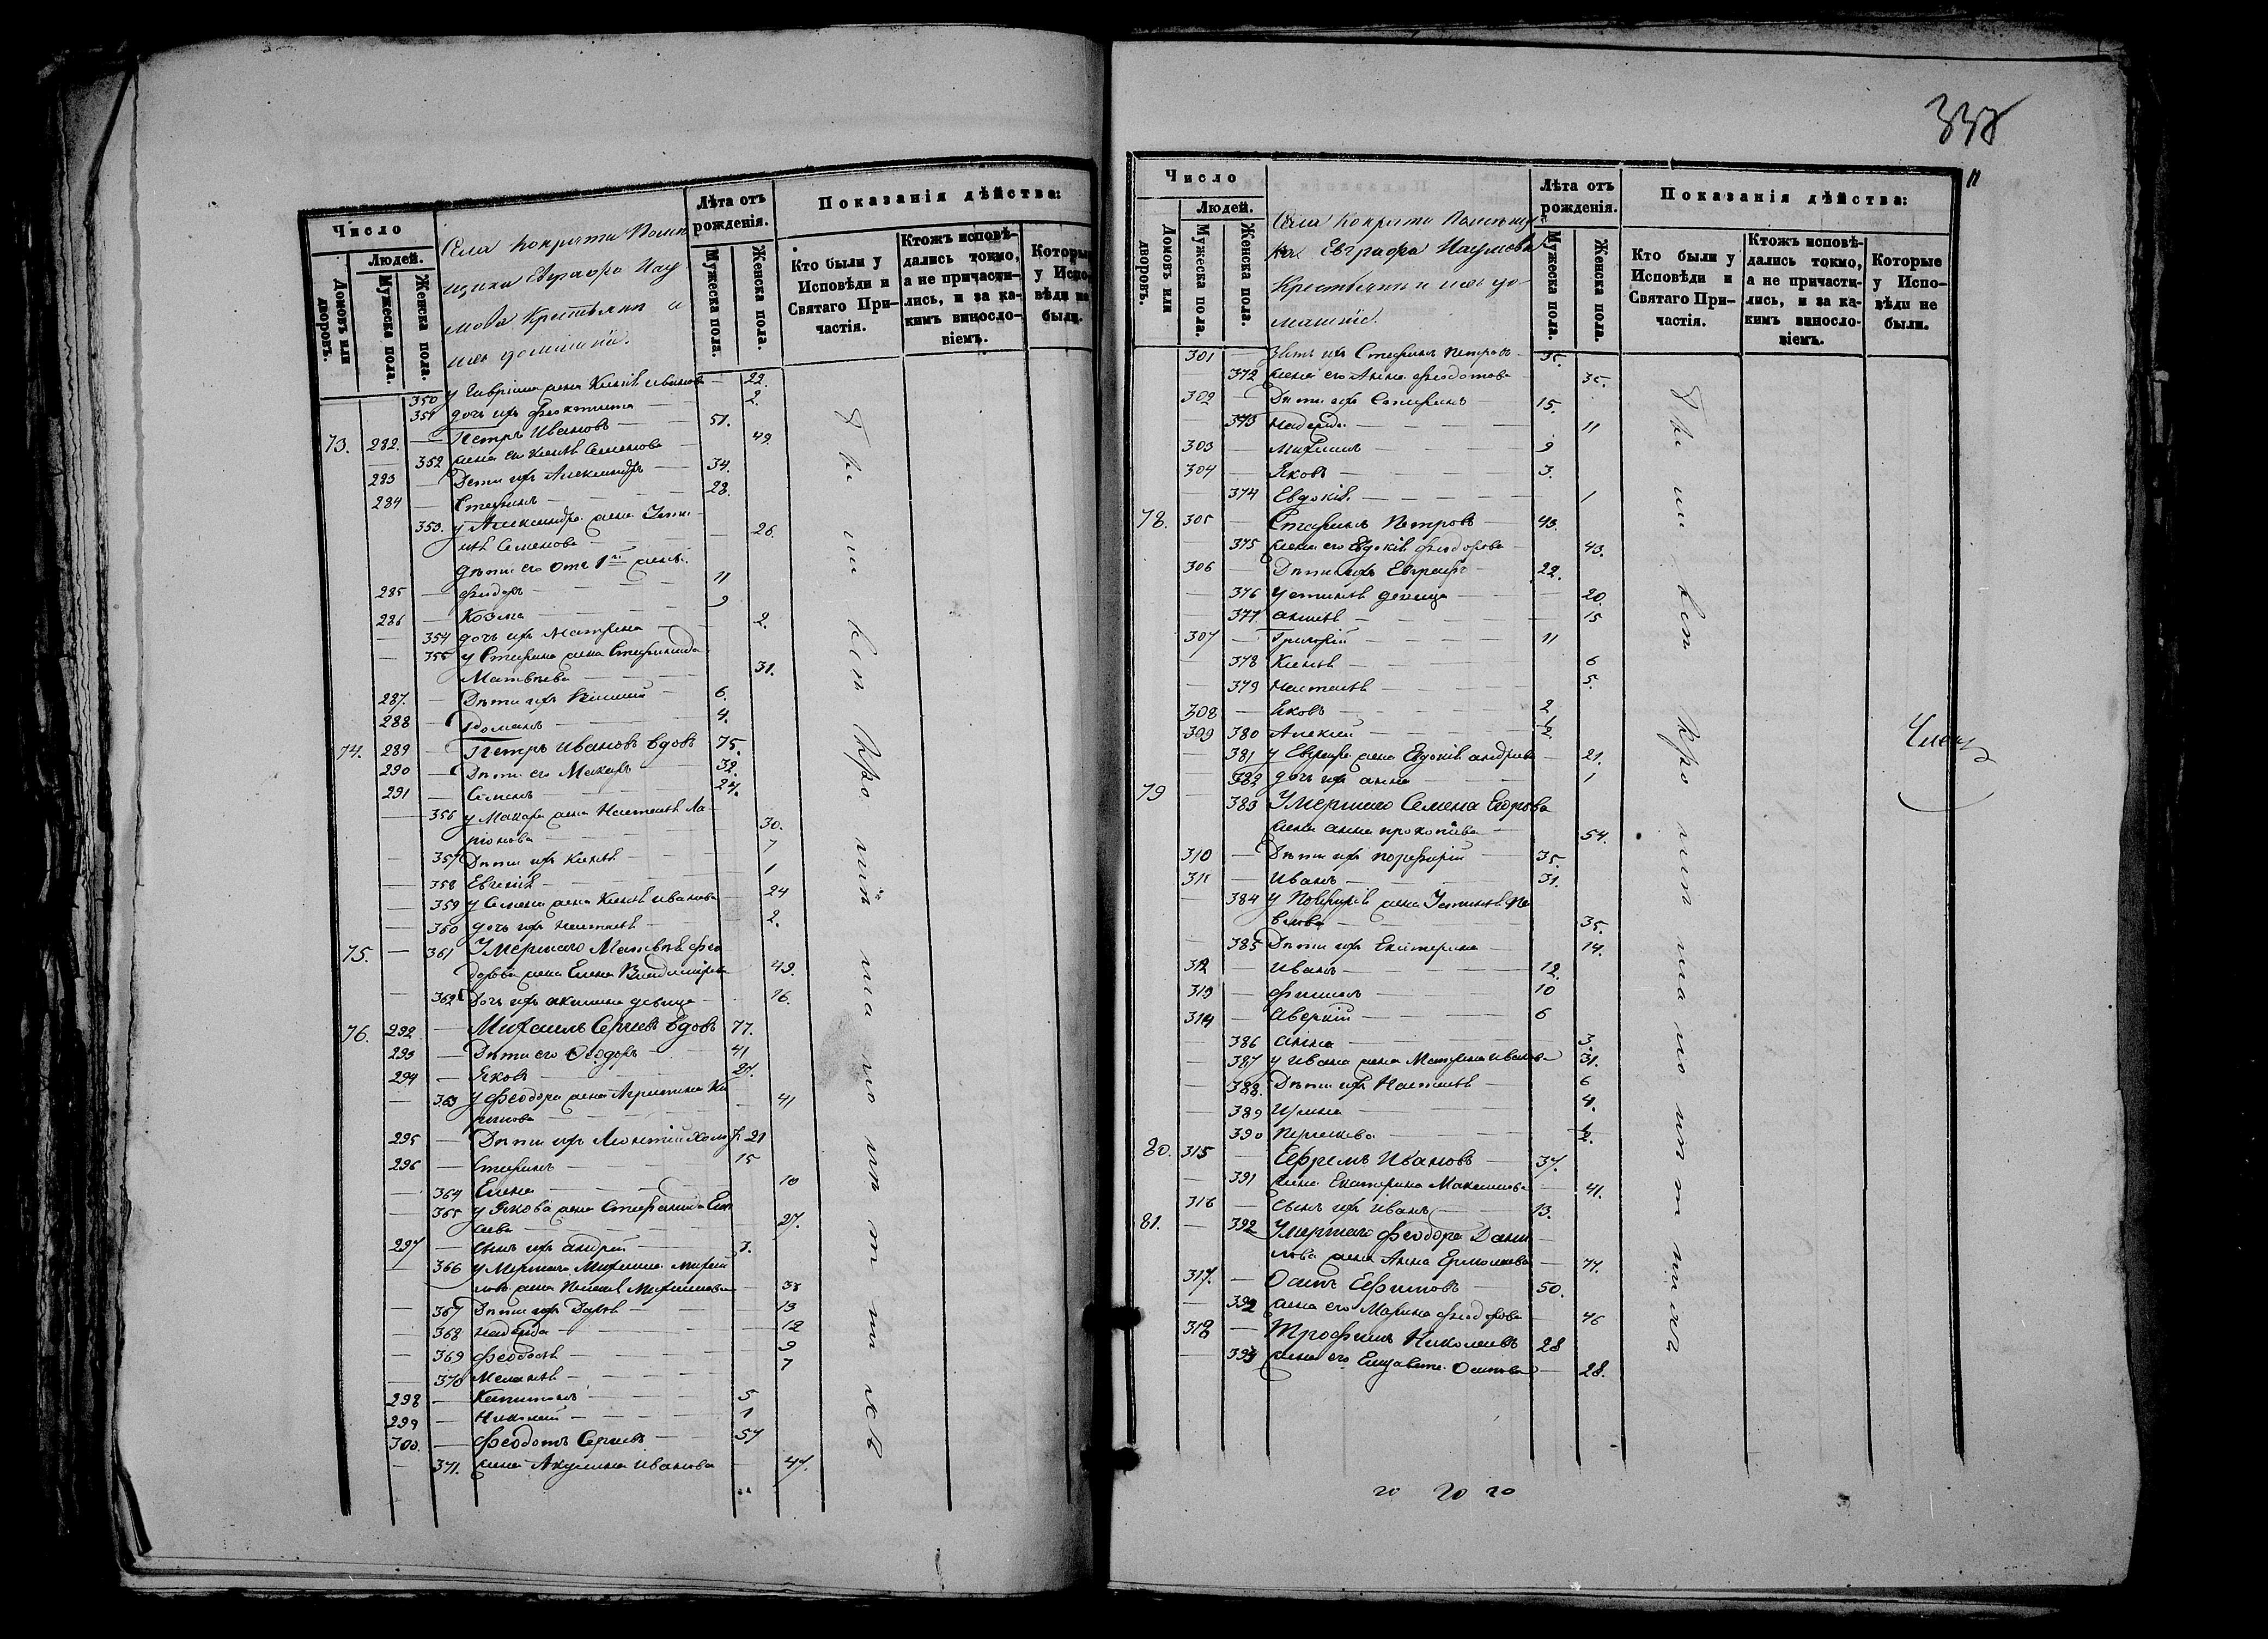 Число
Людей.
Домовъ или дворовъ.
Мужеска пола.
Женска пола.
Села Кокряти Помѣ
щика Евграфа Нау
мова Крестьяне и
ихъ домашніе.
Лѣта отъ рожденія.
Мужеска пола.
Женска пола.
Показанія дѣйства:
Кто были у Исповѣди и Святаго Причастія.
Ктожъ исповѣдались токмо, а не причастились, и за какимъ винословіемъ.
Которые у Исповѣди не были.
350 у Гавріила жена Ксенія Иванова — 22.
351 дочь ихъ Феоктиста — 2.
73. 282. — Петръ Ивановъ — 51.
352 жена его Ксенія Семенова — 49.
283 — Дети ихъ Александръ — 34.
284 — Стефанъ — 28.
353. у Александра жена
Семенова — 26.
дѣти его отъ 1й жены.
285 — Феодоръ — 11
286 — Козма — 9
354 дочь ихъ Матрена — 2.
355 у Стефана жена Стефанида
Матвѣева — 31.
287. — Дѣти ихъ Василій — 6.
288 — Романъ — 4.
74. 289 — Петръ Ивановъ вдовъ 75.
290 — Дѣти его Макаръ — 32.
291 — Семенъ — 27.
356 у Макара жена Настасія Ла
ріонова — 30.
357 Дѣти ихъ Ксенія — 7
358 Евгенія — 1
359 у Семена жена Ксенія Иванова — 24
360 дочь ихъ Настасія — 2.
75. — 361 Умершаго Матвѣя Фео
дорова жена Елена Владимірова 49.
362 Дочь ихъ Акилина девица — 16.
76. 292 — Михаилъ Сергѣевъ вдовъ 77.
293 — Дѣти его Феодоръ — 41
294 — Яковъ — 27.
363 у Феодора жена Агрипина Ки
рилова — 41
295 — Дѣти ихъ Леонтій холос 21
296 — Стефанъ — 15
364 Елена — 10
365 у Якова жена Стефанида Ели
сева — 27.
297 — Сынъ ихъ Андрей — 3.
366 умершаго Михаила Михай
лова жена Пелагія Михайлова — 33
367 Дѣти ихъ Дарья — 13
368 Надежда — 12
369 Феодосія — 9
370 Меланія — 7
298 — Капитонъ — 5
299 — Николай — 1
300. — Феодотъ Сергѣевъ — 57
371. жена Акулина Иванова — 47.
338
11
Число
Людей.
Домовъ или дворовъ.
Мужеска пола.
Женска пола.
Села Кокряти Помѣщи
ка Евграфа Наумова
Крестьяне и ихъ до
машніе.
Лѣта отъ рожденія.
Мужеска пола.
Женска пола.
Показанія дѣйства:
Кто были у Исповѣди и Святаго Причастія.
Ктожъ исповѣдались токмо, а не причастились, и за какимъ винословіемъ.
Которые у Исповѣди не были.
301 — Зять ихъ Стефанъ Петровъ — 35.
372 жена его Анна Феодотова — 35.
302 — Дѣти ихъ Стефанъ — 15.
373 Надежда — 11
303 — Михаилъ — 9
304 — Яковъ — 3.
374 Евдокія — 1
78. 305 — Стефанъ Петровъ — 43.
375 жена его Евдокія Феодорова — 43.
306 — Дѣти ихъ Евграфъ — 22.
376 Устинія девица — 20.
377 — 15
307 — Григорій — 11
378 Ксенія — 6
379 Настасія — 5.
308 — Яковъ — 2
309 380 Алексій — ½
381 у Евграфа жена Евдокія Андреева — 21.
382 дочь ихъ Анна — 1
79 — 383 Умершаго Семена Егорова
жена Анна Прокопіева — 54.
310 — Дѣти ихъ Порфирій — 35.
311 — Иванъ — 31.
384 у Порфирія жена Устинія Па
влова — 35.
385 Дѣти ихъ Екатерина — 14.
312 — Иванъ — 12.
313 — Филиппъ — 10
314 — Аверкій — 6
386 Анна — 3.
387 у Ивана жена Матрена Иванова 31.
388. Дѣти ихъ Настасія — 6
389 Ирина — 4.
390 — ½.
80. 315 — Ефремъ Ивановъ — 37.
391 жена Екатерина Максимова — 41.
316 — Сынъ ихъ Иванъ — 13.
81. — 392 Умершаго Феодора Дани
лова жена Анна Ермолаева — 77.
317. — Осипъ Ефимовъ — 50.
392 жена его Марина Феодорова — 46
318 — Трофимъ Николаевъ 28
393 жена его Елизавета Осипова — 28.